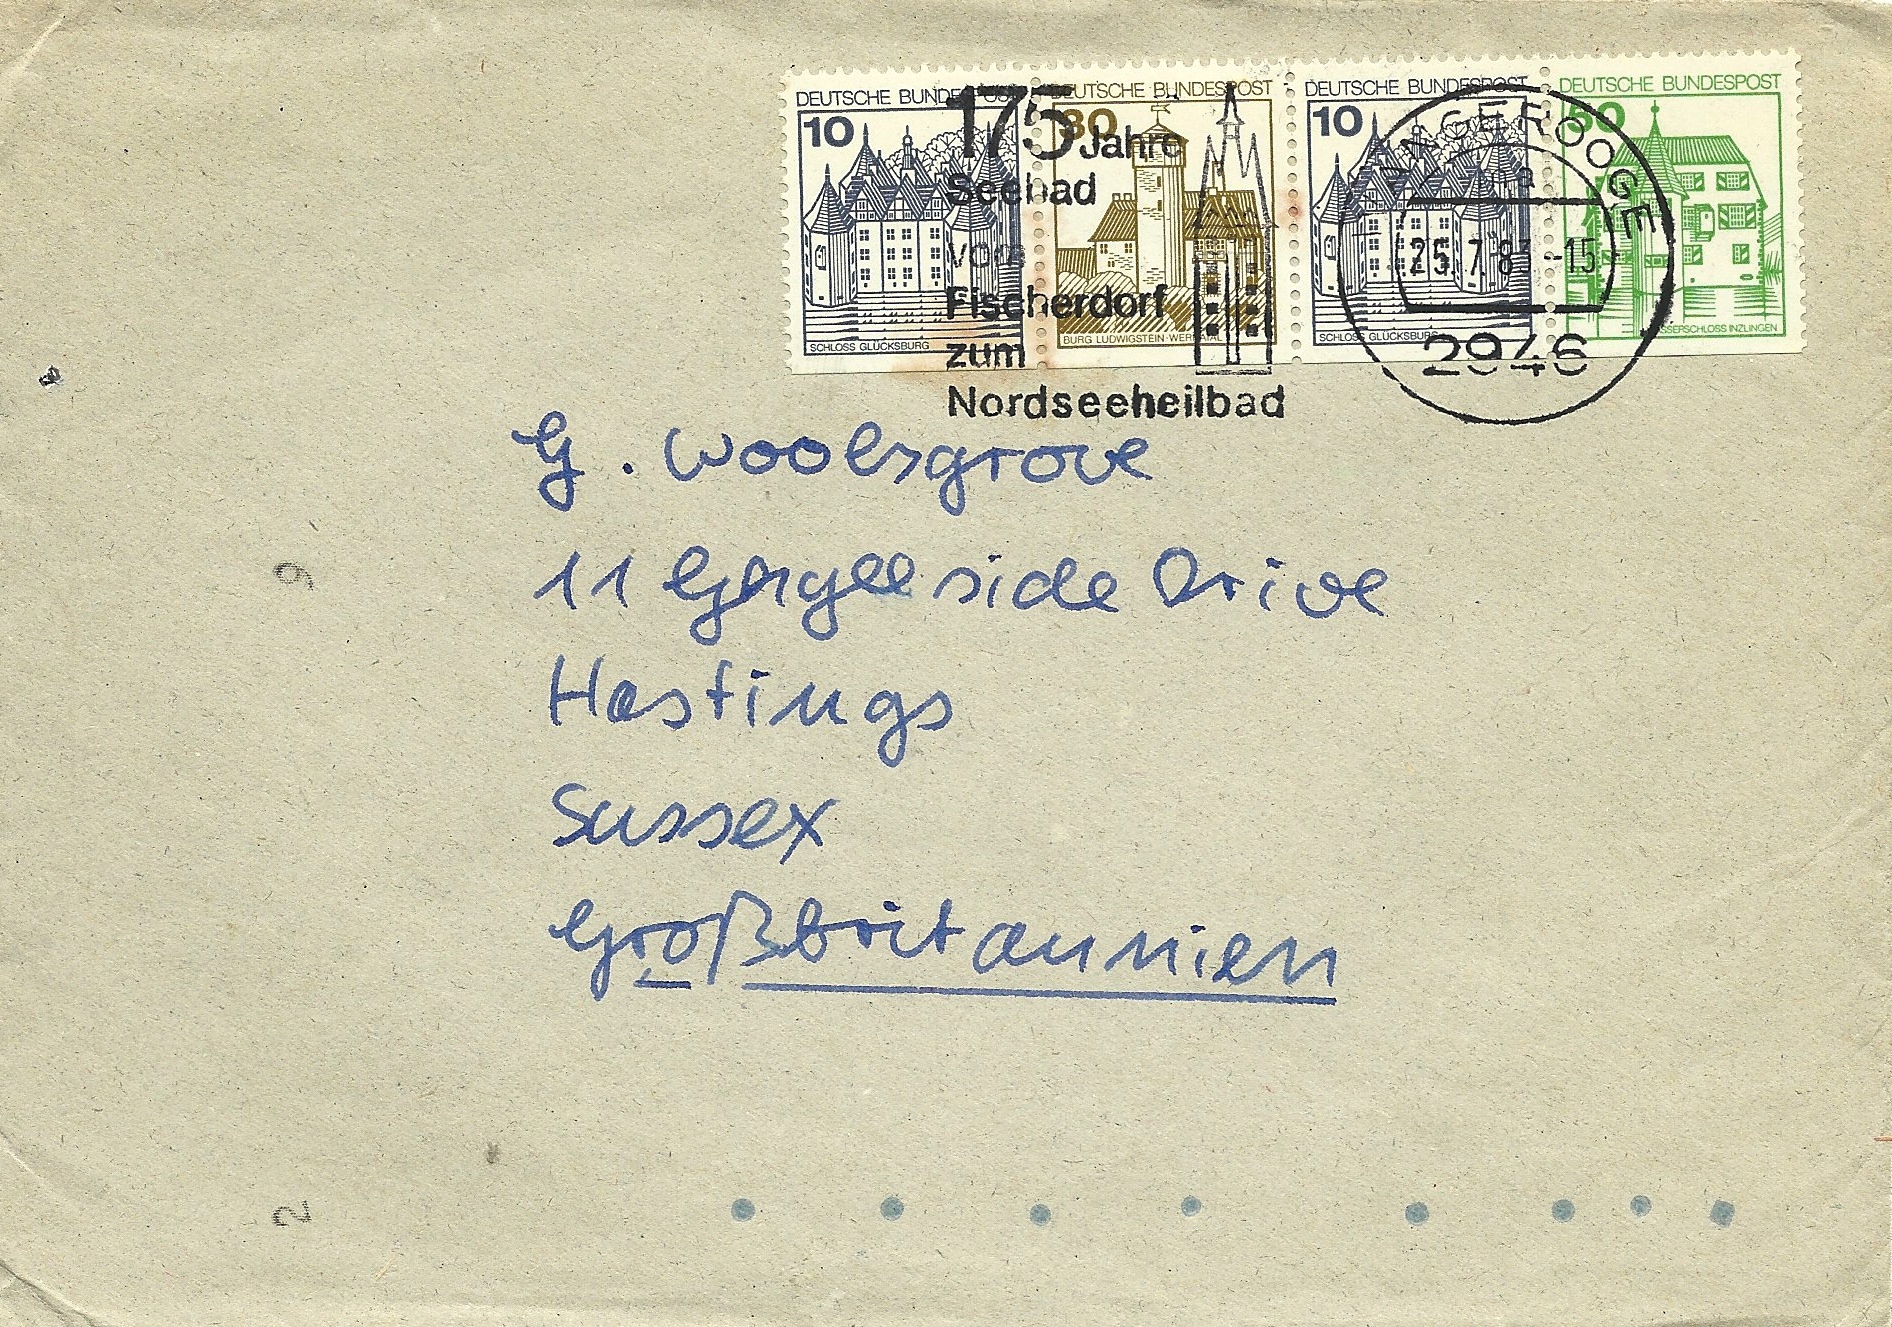 DEUTSCHE BUNDESPOST DEUTSCHE BUNDESPOST DEUTSCHE BUNDESPOST DEUTSCHE BUNDESPOST
10 30 10 50
SCHLOSS GLÜCKSBURG BURG LUDWIGSTEIN·WERRATAL SCHLOSS GLÜCKSBURG WASSERSCHLOSS INZLINGEN
175 Jahre
Seebad
vom
Fischerdorf
zum
Nordseeheilbad
WANGEROOGE
a
25.7.83-15
2946
G. Woolsgrove
11 side Drive
Hastings
Sussex
Großbritannien
6
2